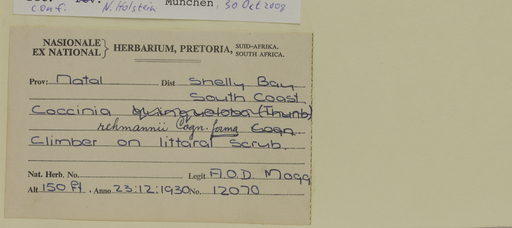 conf. N. Holstein München, 30 Oct 2009
NASIONALE
EX NATIONAL } HERBARIUM, PRETORIA, SUID-AFRIKA.
SOUTH AFRICA.
Prov: Natal Dist Shelly Bay
South Coast
Coccinia quinqueloba (Thunb)
rehmannii Cogn. forma Cogn.
Climber on littoral scrub.
Nat. Herb. No. Legit A.O.D. Mogg
Alt 150 ft. Anno 23:12:1930 No. 12070